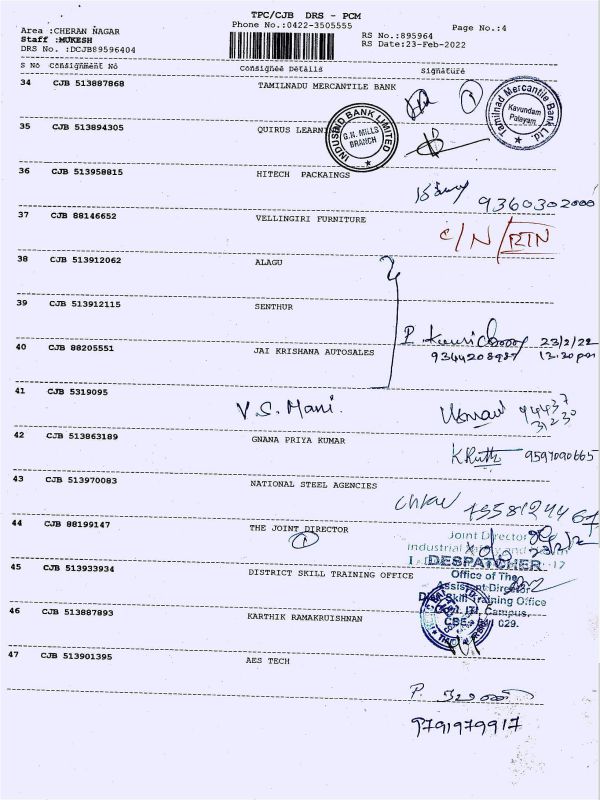 TPC/CJB DRS - PCM
Area :CHERAN NAGAR Phone No.:0422-3505555 Page No.:4
Staff :MUKESH RS No.:895964
DRS No. :DCJB89596404 RS Date:23-Feb-2022
S No Consignment No Consignee Details Signature
34 CJB 513887868 TAMILNADU MERCANTILE BANK
Tamilnad Mercantile Bank Ltd.
Kavundam
Palayam
35 CJB 513894305 QUIRUS LEARNI
INDUSIND BANK LIMITED
G.N. MILLS
BRANCH
36 CJB 513958815 HITECH PACKAINGS
9360302000
37 CJB 88146652 VELLINGIRI FURNITURE
C/N/RTN
38 CJB 513912062 ALAGU
39 CJB 513912115 SENTHUR
P. 23/2/22
40 CJB 88205551 JAI KRISHANA AUTOSALES
12.20 pm
41 CJB 5319095 V.S. Mani.
94437
31230
42 CJB 513863189 GNANA PRIYA KUMAR
9597090665
43 CJB 513970083 NATIONAL STEEL AGENCIES
44 CJB 88199147 THE JOINT DIRECTOR
1
Joint Director
Industrial
DESPATCHER
45 CJB 513933934 DISTRICT SKILL TRAINING OFFICE
Office of The
Assistant Director
Dist. Skill Training Office
Govt. ITI. Campus,
CBE - 641 029.
46 CJB 513887893 KARTHIK RAMAKRUISHNAN
47 CJB 513901395 AES TECH
P.
9791979917